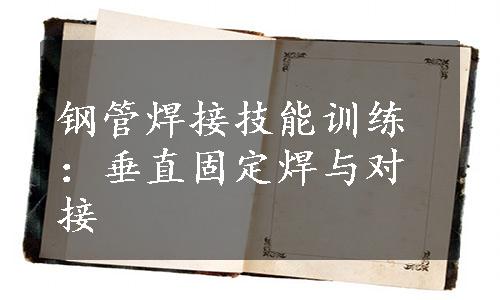 钢管焊接技能训练
：垂直固定焊与对
接